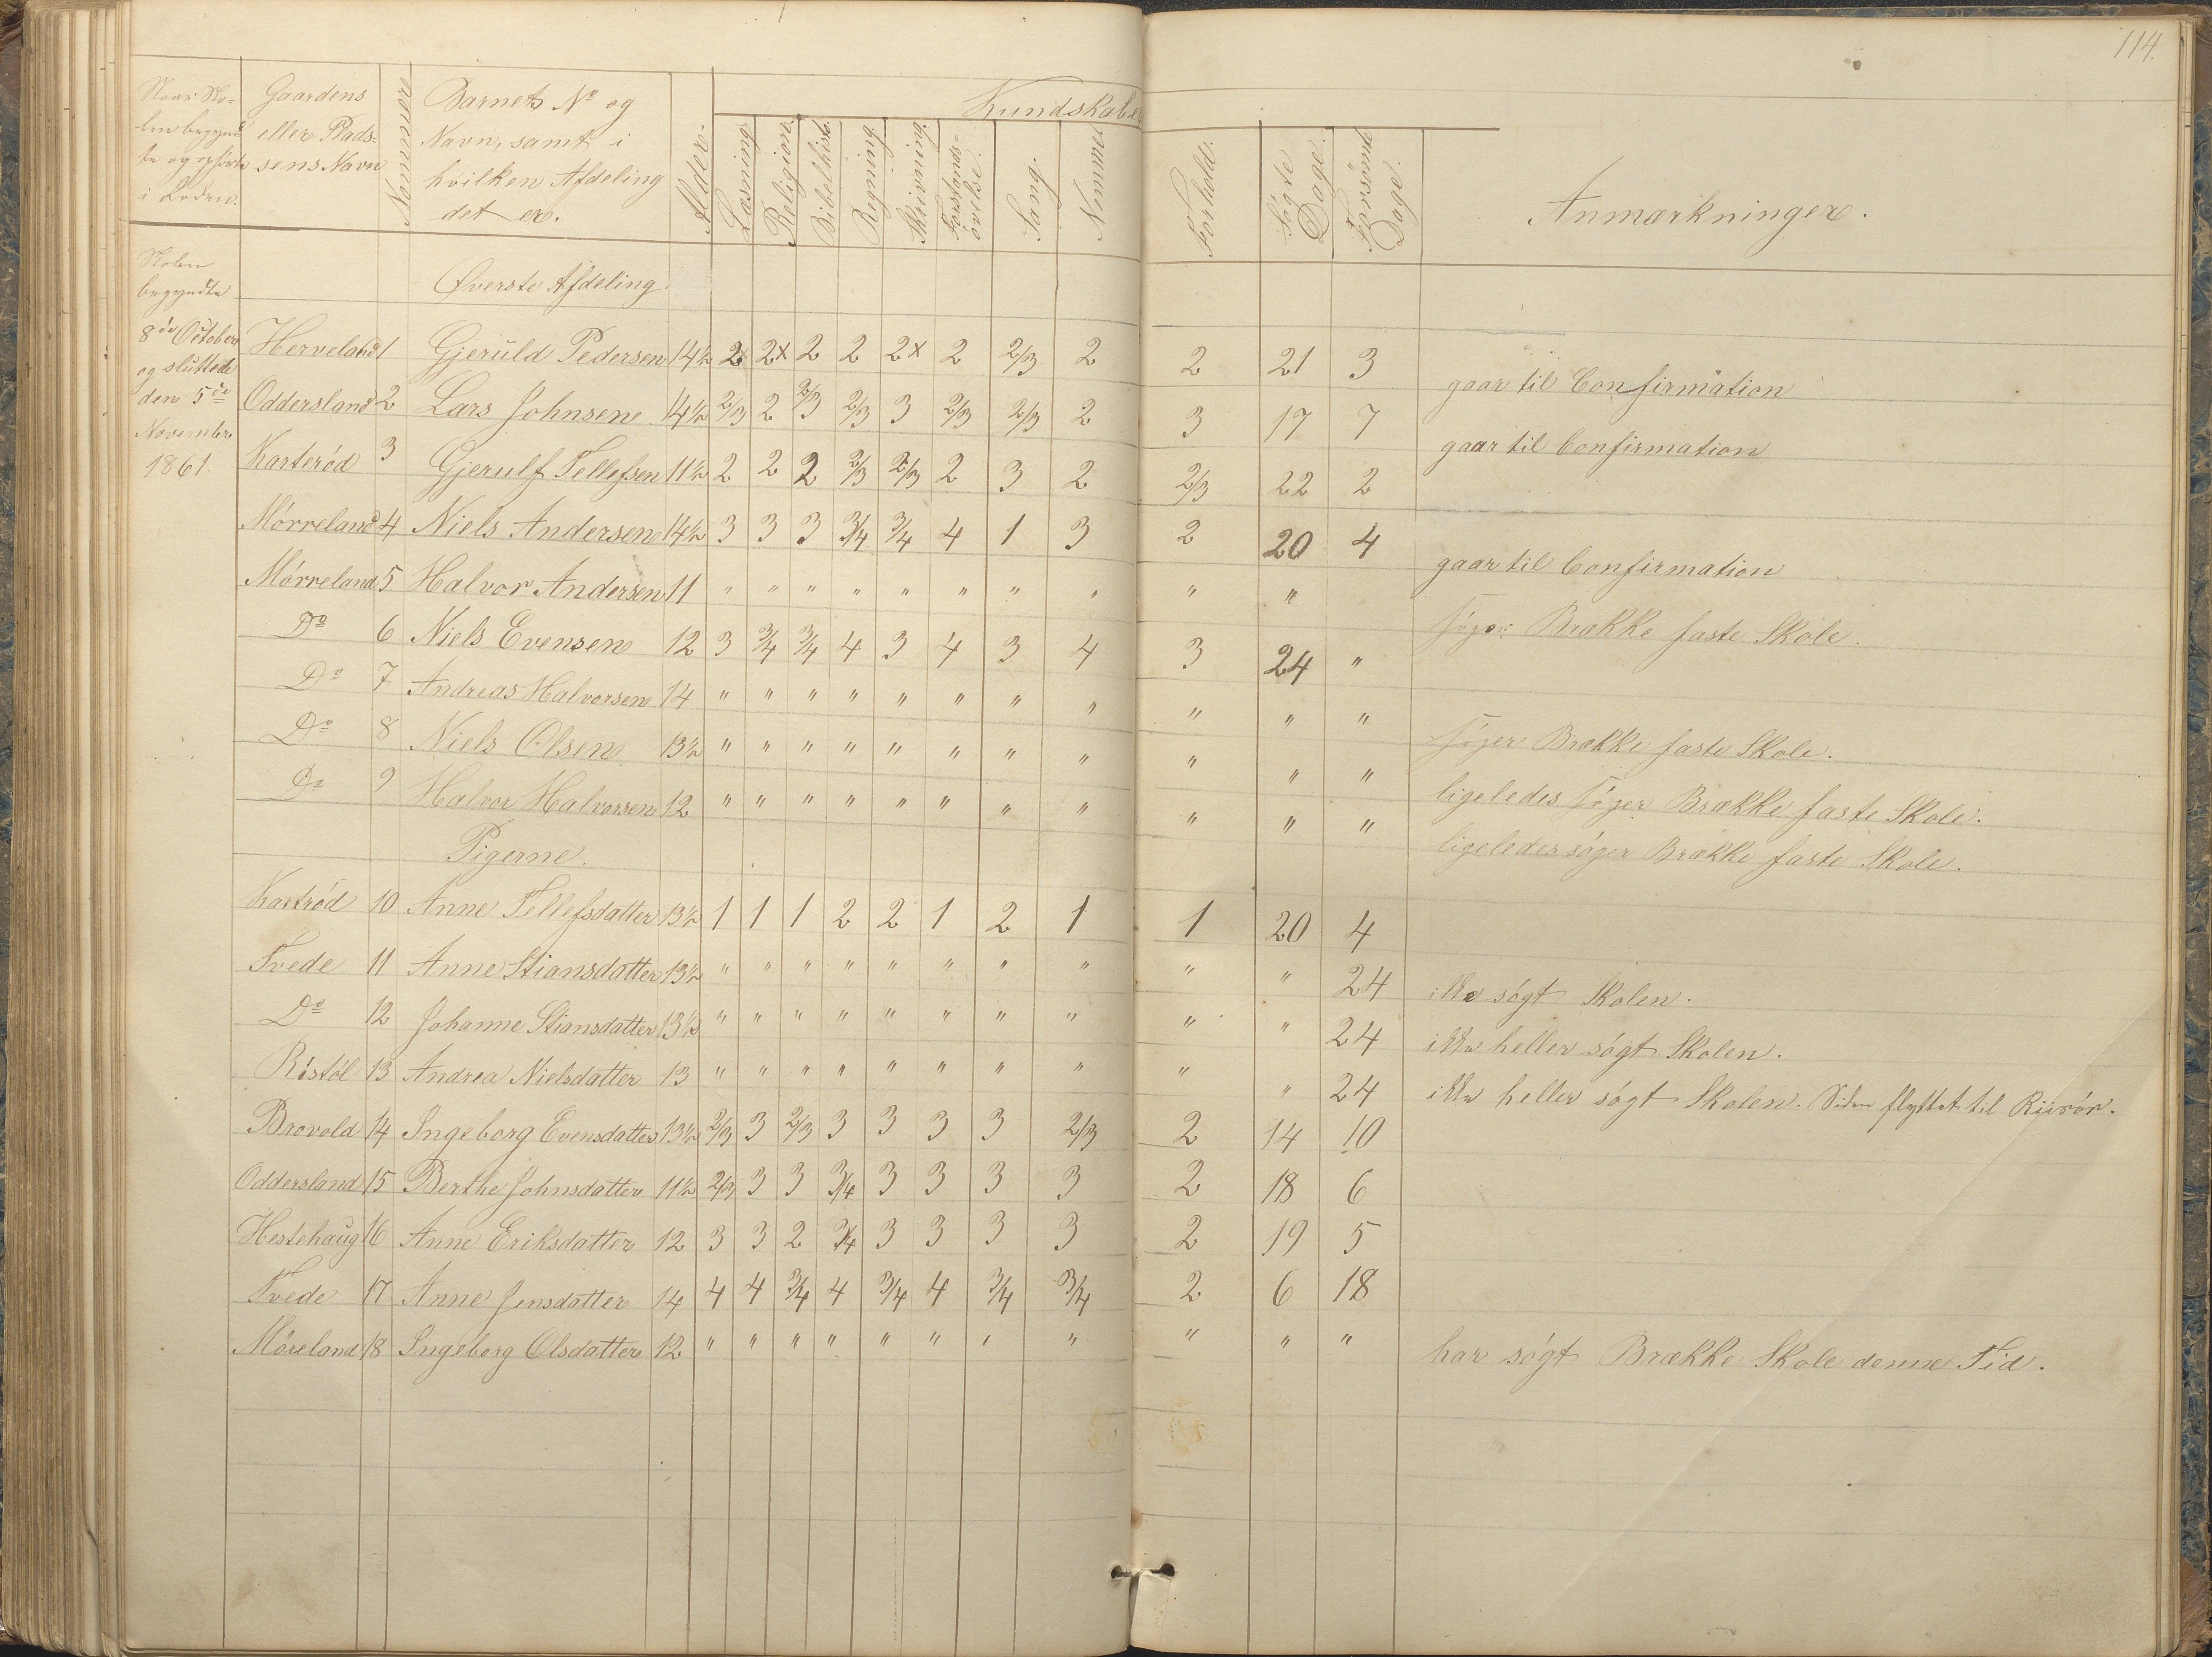 114.
Naar Sko-
len begynd-
te og ophörte
i Roden.
Gaardens
eller Plads-
sens Navn
Nommere
Barnets No og
Navn, samt i
hvilken Afdeling
det er.
Alder.
Kundskaber
Læsning.
Religion.
Bibelhist.
Regning.
Skrivning.
Forstands-
övelse.
Sang.
Nemme
Forhold.
Søgte
Dage.
Forsömte
Dage.
Anmærkninger.
Skolen
begyndte
8de October
og sluttede
den 5te
November
1861.
Øverste Afdeling
Herveland 1 Gjeruld Pedersen 14½ 2x 2x 2 2 2x 2 2/3 2 2 21 3 gaar til Confirmation
Oddersland 2 Lars Johnsen 14½ 2/3 2 2/3 2/3 3 2/3 2/3 2 3 17 7 gaar til Confirmation
Karteröd 3 Gjerulf Tellefsen 11½ 2 2 2 2/3 2/3 2 3 2 2/3 22 2
Mörreland 4 Niels Andersen 14½ 3 3 3 3/4 3/4 4 1 3 2 20 4 gaar til Confirmation
Mörreland 5 Halvor Andersen 11 " " " " " " " " " " söger Brække faste Skole.
Do 6 Niels Evensen 12 3 3/4 3/4 4 3 4 3 4 3 24 "
Do 7 Andreas Halvorsen 14 " " " " " " " " " " " söger Brække faste Skole.
Do 8 Niels Olsen 13½ " " " " " " " " " " " ligeledes söger Brække faste Skole.
Do 9 Halvor Halvorsen 12 " " " " " " " " " " " ligeledes söger Brække faste Skole.
Pigerne.
Kartröd 10 Anne Tellefsdatter 13½ 1 1 1 2 2 1 2 1 1 20 4
Tvede 11 Anne Stiansdatter 13½ " " " " " " " " " " 24 ikke sögt Skolen.
Do 12 Johanne Stiansdatter 13½ " " " " " " " " " " 24 ikke heller sögt Skolen.
Röstöl 13 Andrea Nielsdatter 13 " " " " " " " " " " 24 ikke heller sögt Skolen. Siden flyttet til Riisör.
Brovold 14 Ingeborg Evensdatter 13½ 2/3 3 2/3 3 3 3 3 2/3 2 14 10
Oddersland 15 Berthe Johnsdatter 11½ 2/3 3 3 3/4 3 3 3 3 2 18 6
Hestehaug 16 Anne Eriksdatter 12 3 3 2 3/4 3 3 3 3 2 19 5
Tvede 17 Anne Jensdatter 14 4 4 3/4 4 3/4 4 3/4 3/4 2 6 18
Möreland 18 Ingeborg Olsdatter 12 " " " " " " " " " " " har sögt Brække Skole denne Tid.